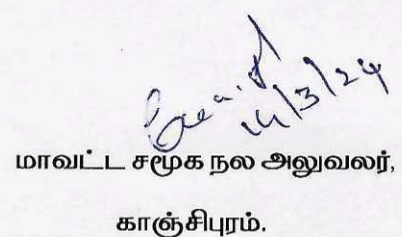 14/3/24
மாவட்ட சமூக நல அலுவலர்,
காஞ்சிபுரம்.